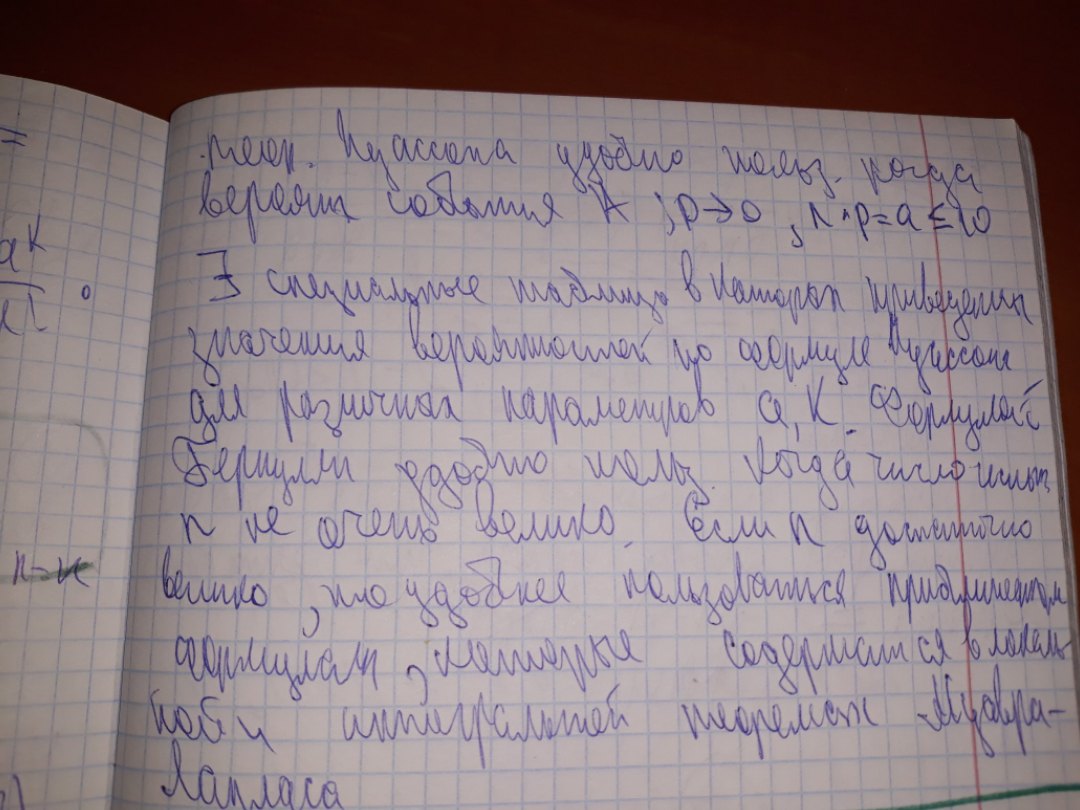 =
a^k
к!
.
n-к
теор. Пуассона удобно польз. когда
вероятн события A ; p→0 , n·p=a≤10
∃ специальные таблицы в которых приведены
значения вероятностей по формуле Пуассона
для различных параметров a, K. Формулой
Бернулли удобно польз. когда число испыт.
n не очень велико. Если n достаточно
велико, то удобнее пользоваться приближенным
формулами, которые содержатся в локаль
ной и интегральной теоремах Муавра-
Лапласа